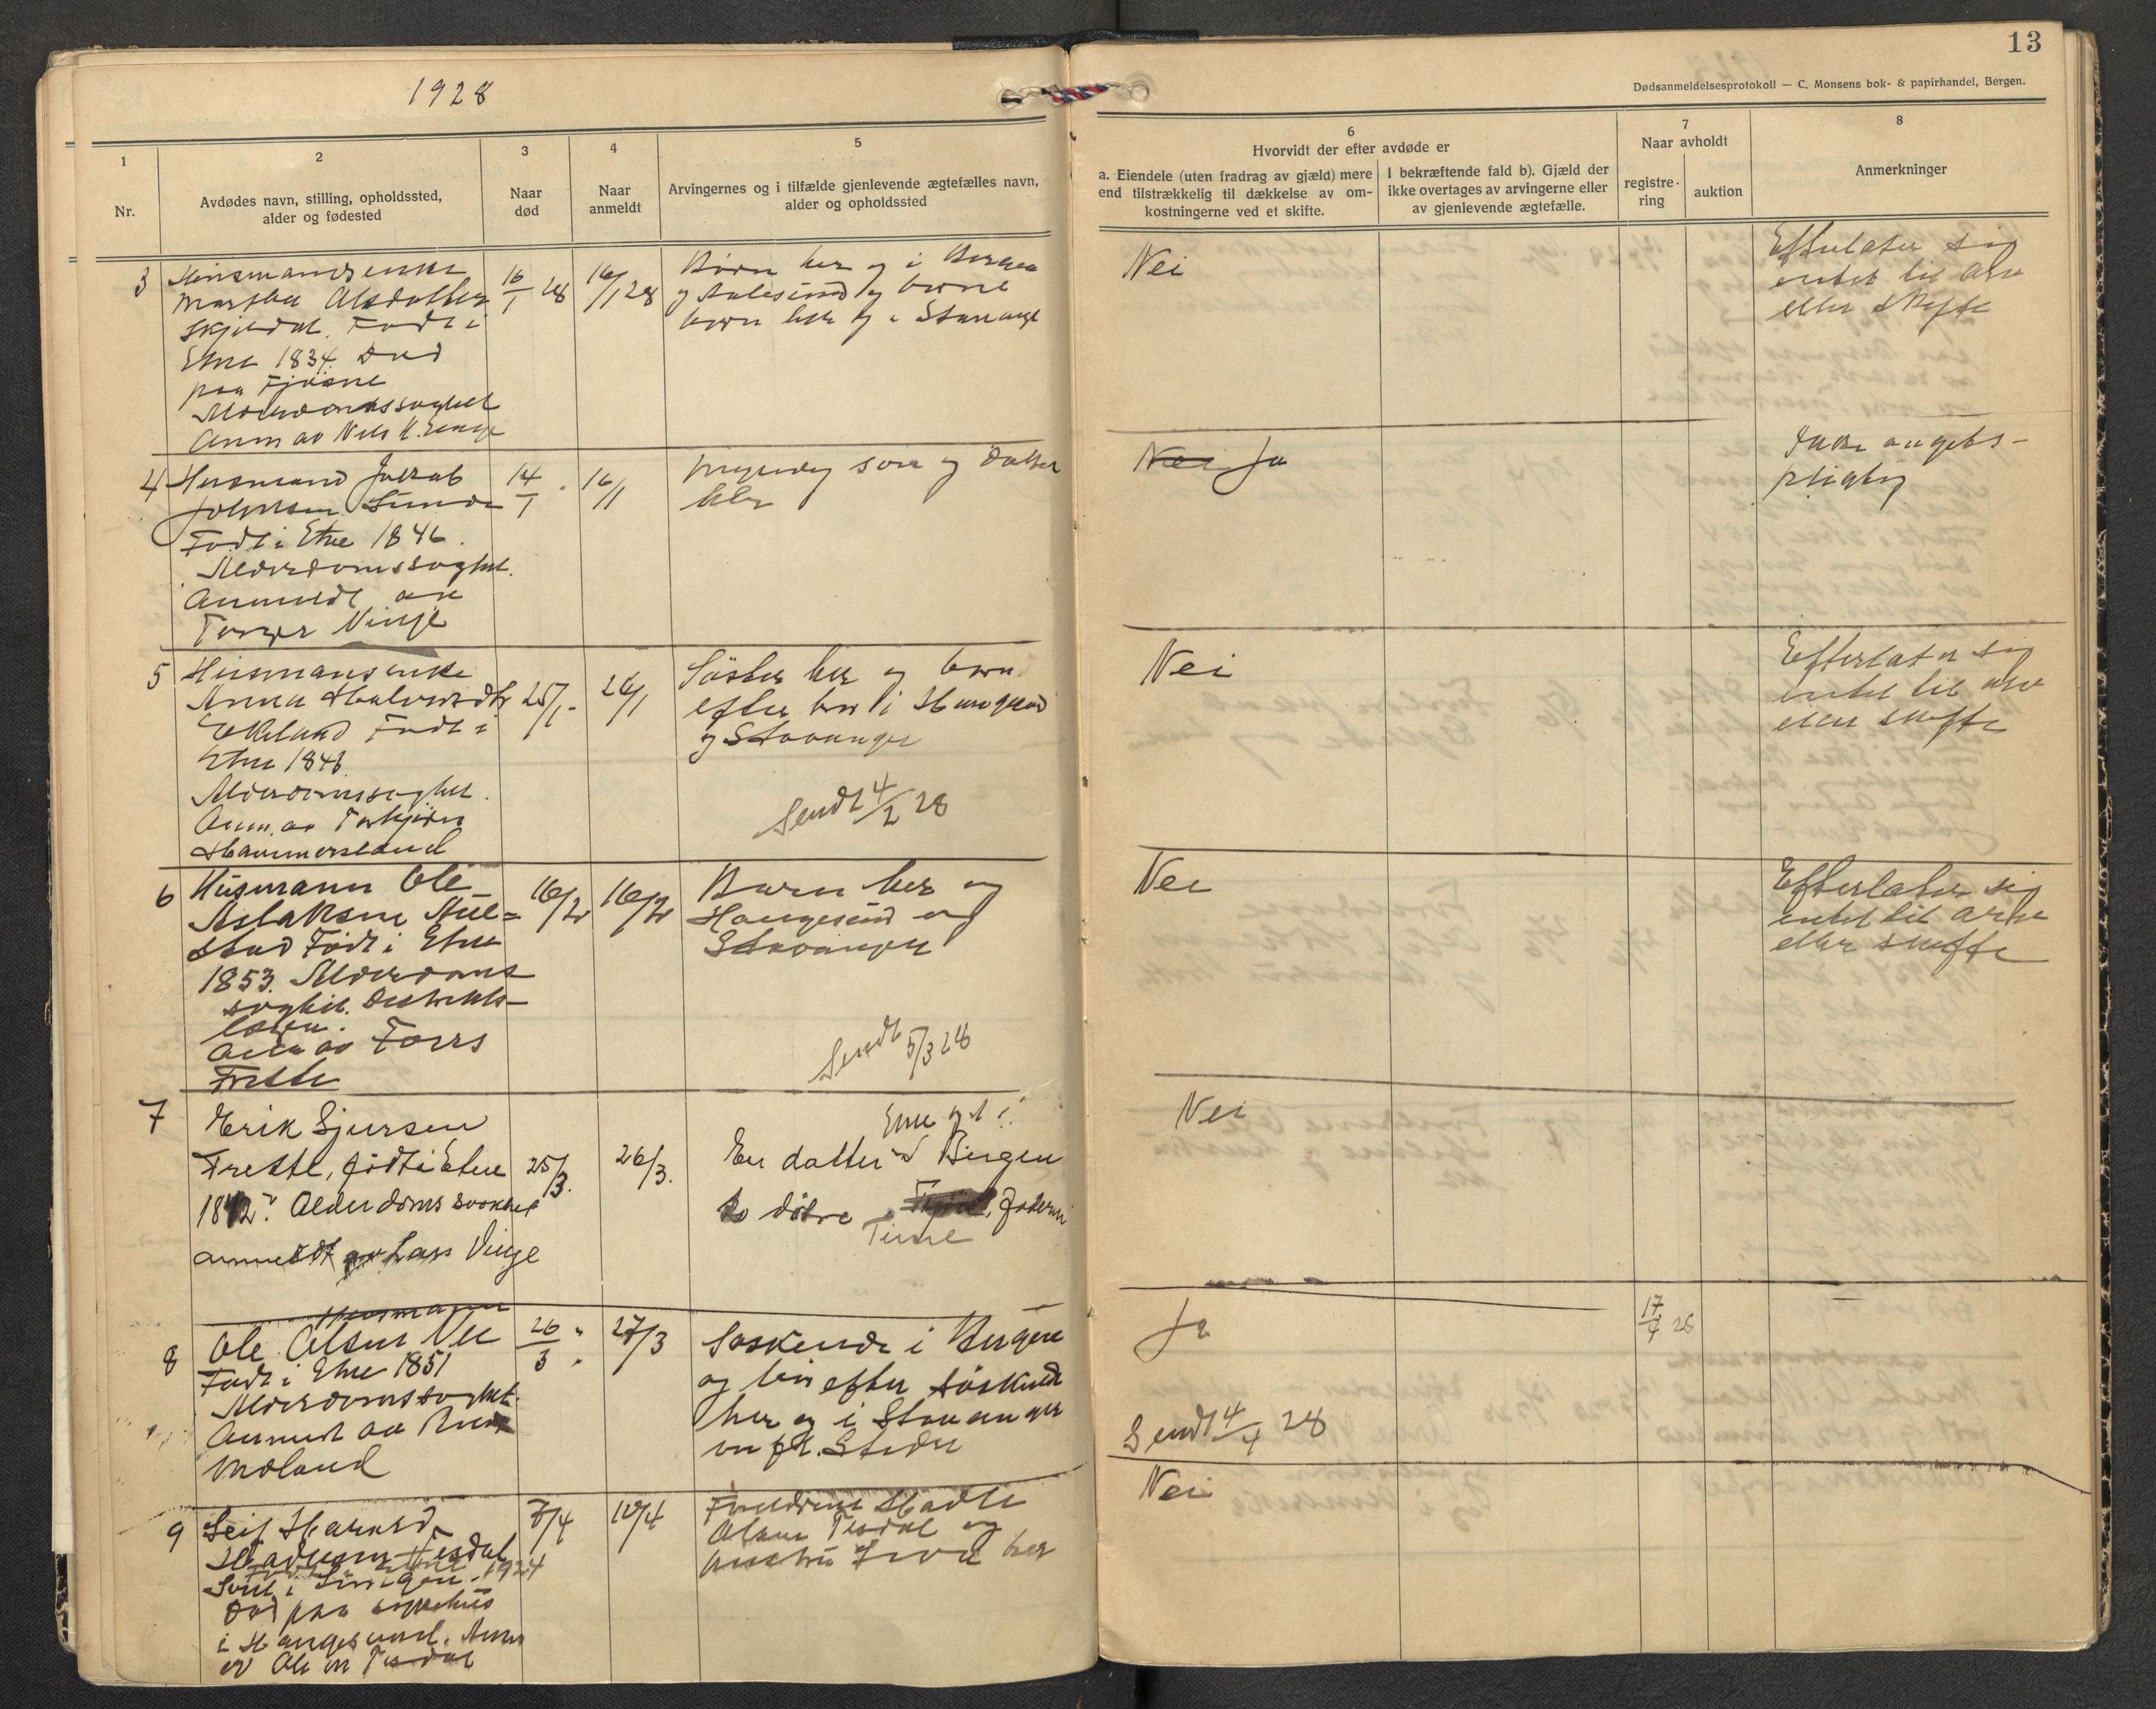 1928
1
Nr.
2
Avdødes navn, stilling, opholdssted,
alder og fødested
3
Naar
død
4
Naar
anmeldt
5
Arvingernes og i tilfælde gjenlevende ægtefælles navn,
alder og opholdssted
3
Husmandsenke
Marthe Olsdatter
Skjeldal. Født i
Etne 1834. Død
paa Fjøsne
Alderdomssvaghet
Anm av Nels
16/1 28
16/1 28
Børn her og i Bergen
og Aalesund og barne
børn her og i Stavanger
4
Husmand Jakob
Johnsen Sunde
Født i Etne 1846.
Alderdomssvaghet.
Anmeldt av
Torger Vinje
14/1
16/1
Myndig søn og datter
her
5
Husmansenke
Anna Halvorsdtr
Ekeland Født i
Etne 1846
Alderdomssvaghet.
Anm. av Torbjørn
Hammersland
25/1
26/1
Søster her og børn
efter bror i Haugesund
og Stavanger
Sendt 4/2 28
6
Husmann Ole
Aslaksen
stad Født i Etne
1853. Alderdoms
svaghet. Distrikts-
lægen.
Anm av Lars
Frette
16/2
16/2
Børn her og
Haugesund og
Stavanger
Sendt 5/3 28
7
Erik Sjursen
Frette, født i Etne
1842. Alderdomssvakhet
anmeldt av Lars Vinje
25/3.
26/3.
Etne og 1 i
En datter i Bergen
to døtre
Time
8
Husmann
Ole Olsen Vee
Født i Etne 1851
Alderdomssvaghet.
Anmeldt av
Møland
26/3
27/3
Søskende i Bergen
og børn efter søskende
her og i Stavanger
9
Leif Harald
Hadleson Tesdal
1924
Død paa sykehus
i Haugesund. Anm
av Ole M Tesdal
7/4
10/4
Forældrene Hadle
Olsen Tesdal og
hustru her
13
Dødsanmeldelsesprotokoll — C. Monsens bok- & papirhandel, Bergen.
6
Hvorvidt der efter avdøde er
a. Eiendele (uten fradrag av gjæld) mere
end tilstrækkelig til dækkelse av om-
kostningerne ved et skifte.
I bekræftende fald b). Gjæld der
ikke overtages av arvingerne eller
av gjenlevende ægtefælle.
7
Naar avholdt
registre-
ring
auktion
8
Anmerkninger
Nei
Efterlater sig
intet til arv
eller skifte
Nei Ja
Ikke
pligtig
Nei
Efterlater sig
intet til arv
eller skifte
Nei
Efterlater sig
intet til arv
eller skifte
Nei
Ja
17/4 28
Sendt 4/4 28
Nei